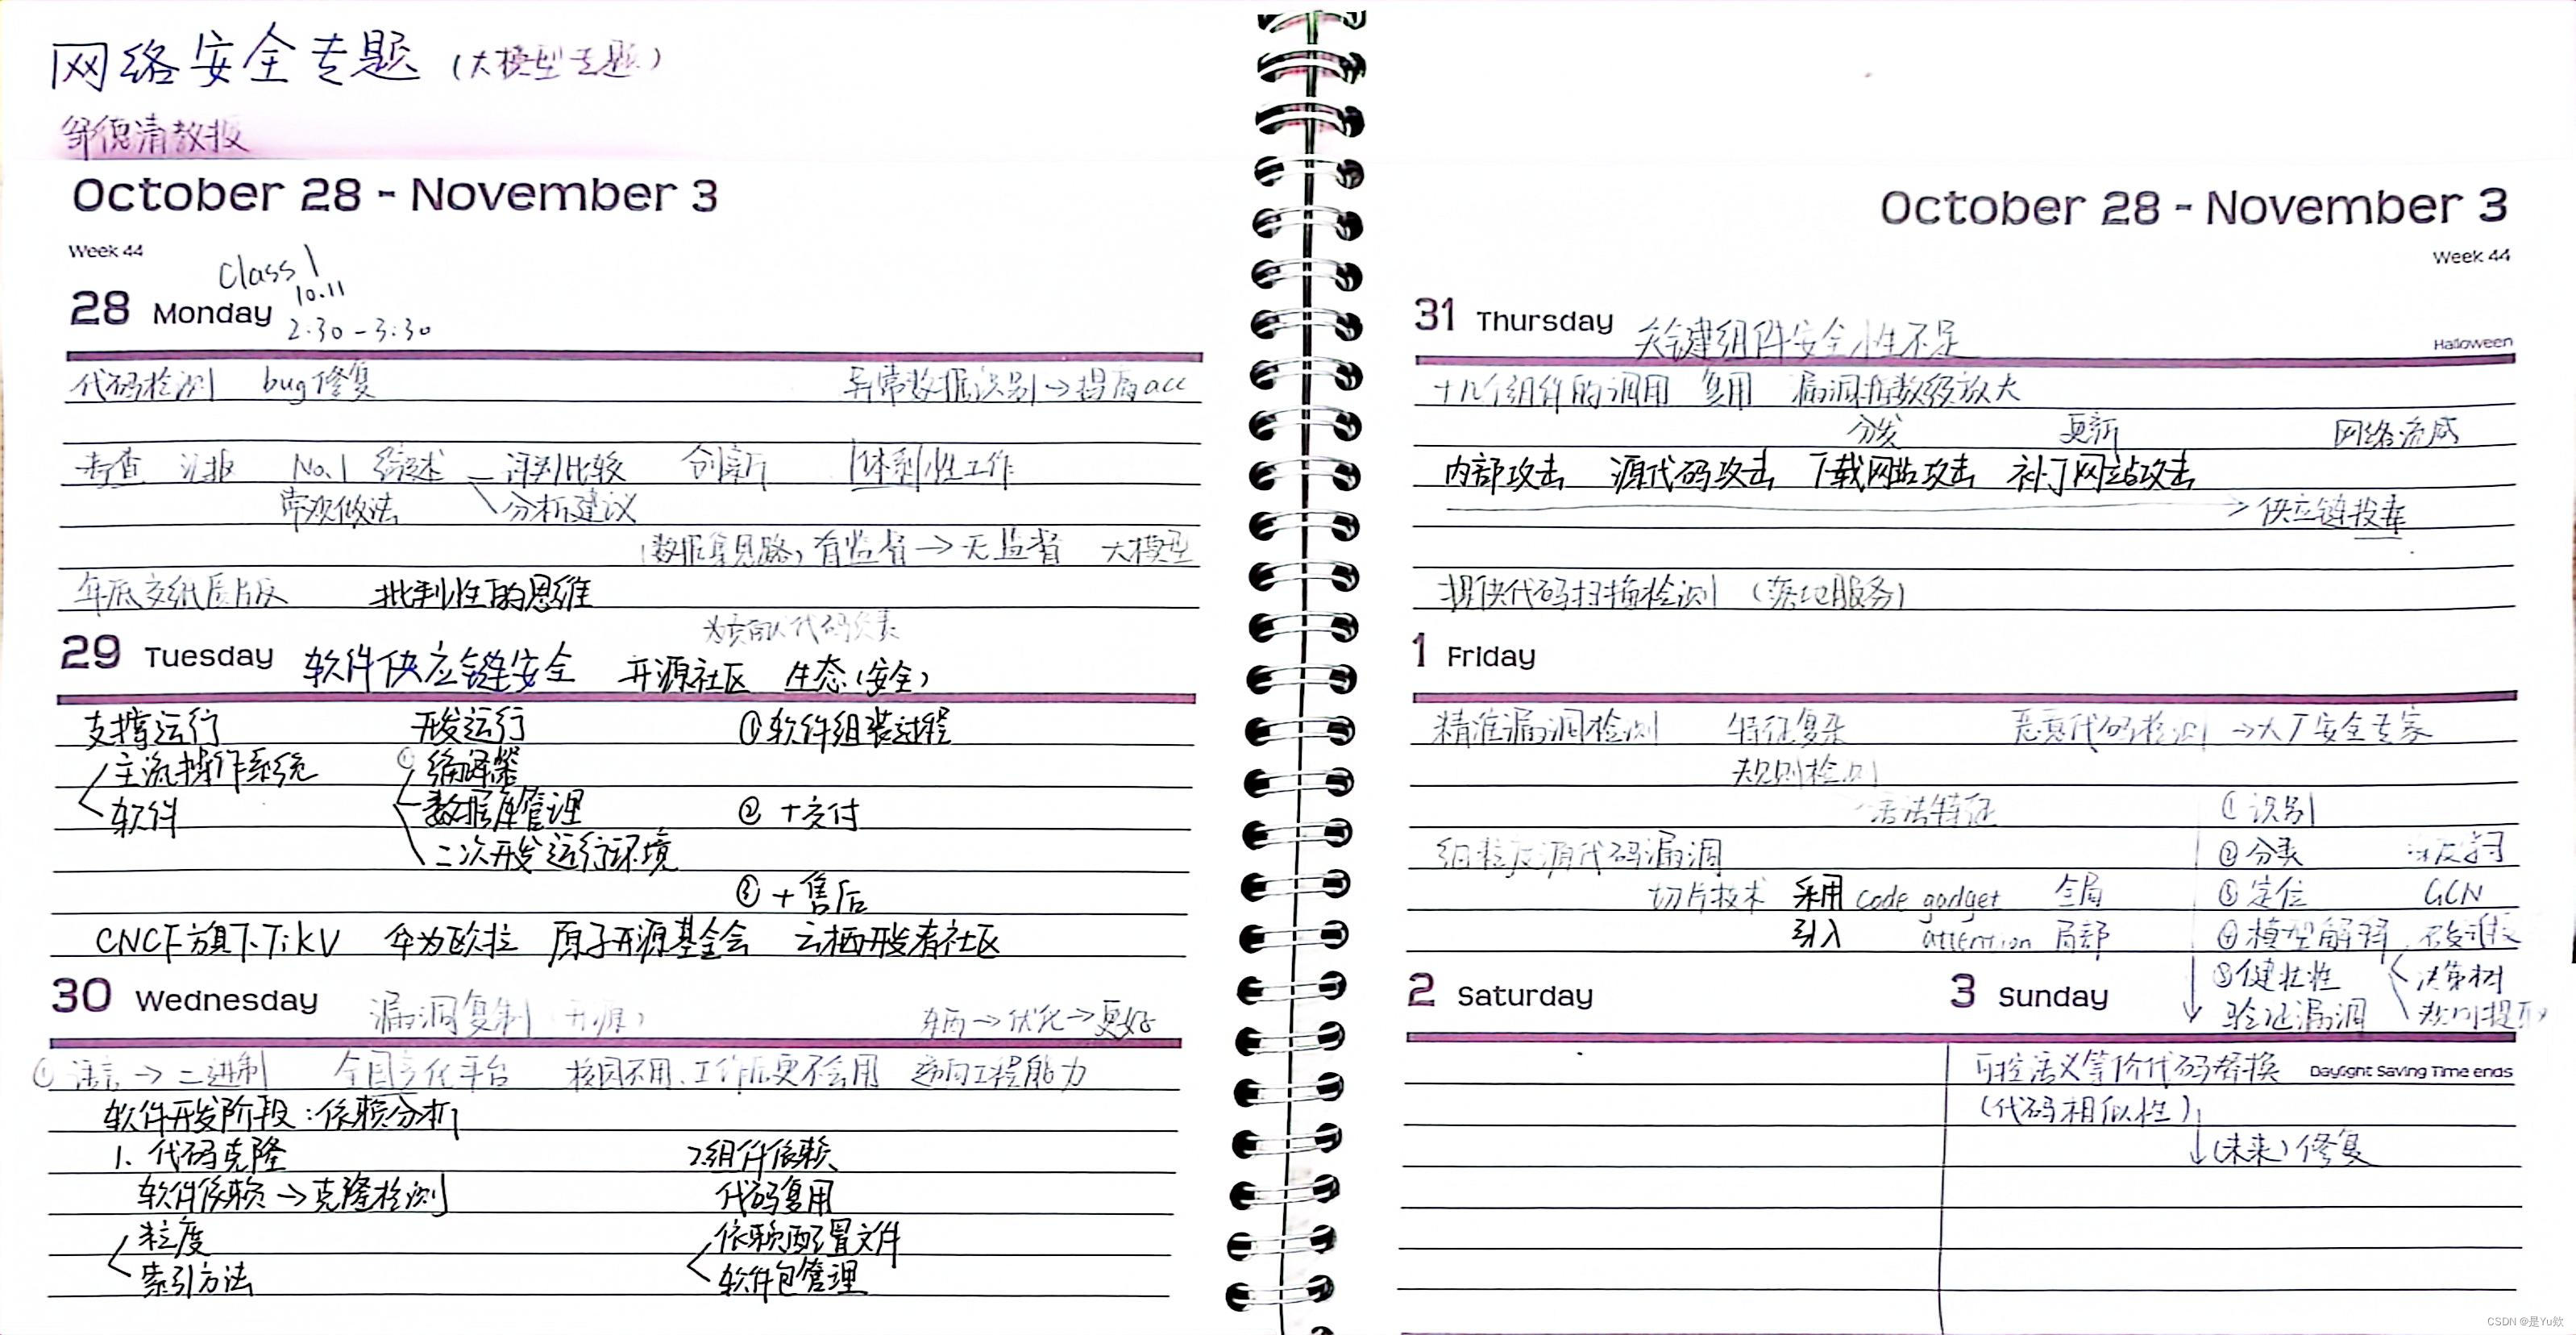 网络安全专题（大模型专题）
邹德清教授
October 28 - November 3
Week 44
Class 1
10.11
28 Monday
2:30-3:30
代码检测 bug修复 异常数据识别→提高acc
考查 汇报 No.1 综述 评判比较 创新 体系性工作
常规做法 分析建议
（数据集思路，有监督→无监督 大模型
年底交纸质片版 批判性的思维
为贡献代码
29 Tuesday 软件供应链安全 开源社区 生态（安全）
支撑运行 开发运行 ①软件组装过程
主流操作系统 ①编译器
软件 数据库管理 ②+交付
二次开发运行环境
③+售后
CNCF旗下TiKV 华为欧拉 原子开源基金会 云栖开发者社区
30 Wednesday 漏洞复制（开源） 东西→优化→更好
① 语言→二进制 全国产化平台 校园不用、工作后更不会用 逆向工程能力
软件开发阶段：依赖分析
1、代码克隆 2.组件依赖
软件依赖→克隆检测 代码复用
粒度 依赖配置文件
索引方法 软件包管理
October 28 - November 3
Week 44
31 Thursday 关键组件安全性不足
Halloween
十几个组件的调用 复用 漏洞指数级放大
分发 更新 网络流感
内部攻击 源代码攻击 下载网站攻击 补丁网站攻击
→供应链投毒
提供代码扫描检测（落地服务）
1 Friday
精准漏洞检测 特征复杂 恶意代码检测→大厂安全专家
规则检测
语法特征 ①识别
细粒度源代码漏洞 ②分类
切片技术 采用 code gadget 全局 ③定位 GCN
引入 attention 局部 ④模型解释
⑤健壮性 决策树
2 Saturday
3 Sunday
验证漏洞 规则提取
可控语义等价代码替换
Daylight Saving Time ends
（代码相似性）
↓（未来）修复
CSDN @是Yu欸